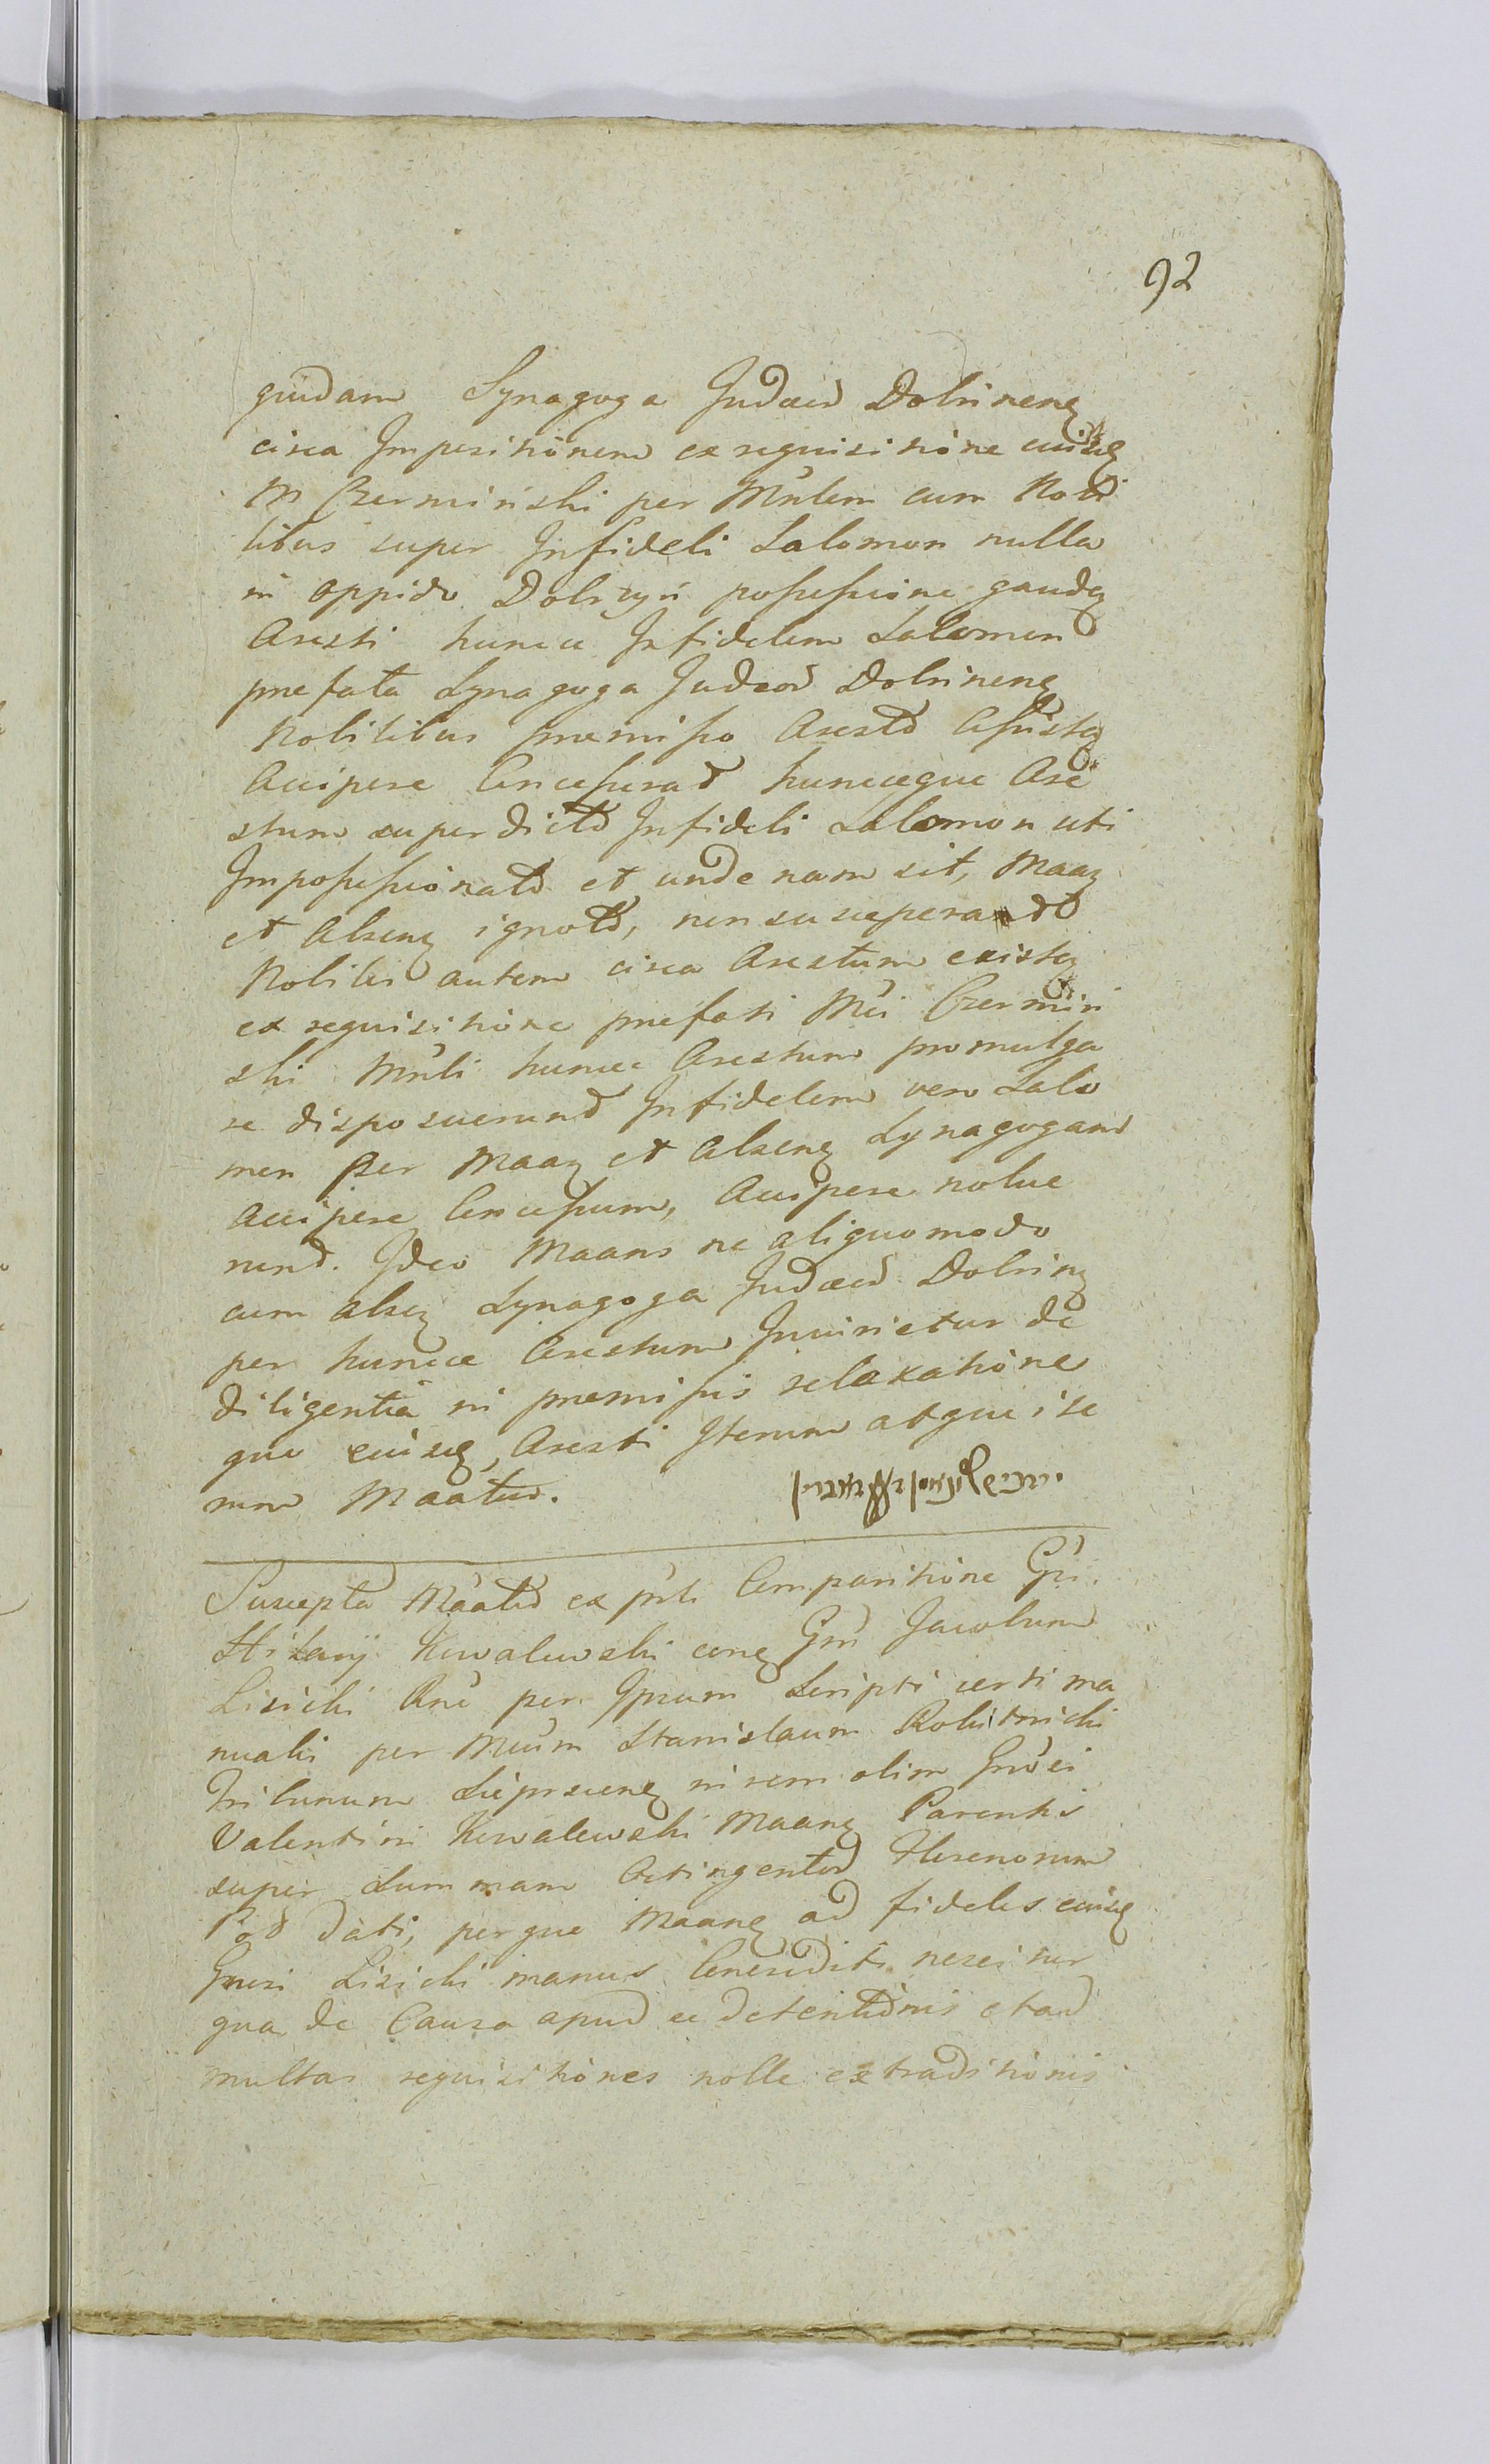 92
quidam Synagoga Judaeor Dobrinens
circa Impositionem ex requisitione eiusq
M Czerminski per Mnlem cum Nobi
libus super Infideli Salomon nulla
in oppido Dobrzyn possessione gaudeń
Aresti hunce Infidelem Salomon
praefata Synagoga Judeor Dobrinens
Nobilibus praemisso Aresto Assisteń
Accipere Concesserat huncceque Are
stum super dicto Infideli Salomon uti
Impossessionato et unde nam sit, Maań
et Alsens ignoto, non susceperat
Nobiles autem circa Arestum existeń
ex requisitione praefati Mci Czermin
ski Mnli huncce Arestum promulga
re disposuerunt Infidelem vero Salo
mon per Maań et Alsens Synagogam
accipere Concessum, Accipere nolue
runt. Ideo Maans ne aliquomodo
cum alsens Synagoga Judaeor Dobrins
per huncce Arestum Inuinietur de
diligentia in praemissis relaxatione
que eiusq Aresti Iterum atque ite
rum Maatur.
Suscepta Maato ex psti Comparitione Gsi
Hilarij Kowalewski cong Gsm Jacobum
Lisicki Ane per Ipsum Scripti certi ma
nualis per Mcum Stanislaum Rokitnicki
Tribunum Lieprscens in rem olim Gnrosi
Valentini Kowalewski Maans Parentis
super Summam Attingentem Florenorum
Pol dati, perque Maans ad fideles eiusq
Gnrosi Lisicki manus Concrediti nescitur
qua de Causa apud se detentionis et ad
multas requisitiones nolle extraditionis